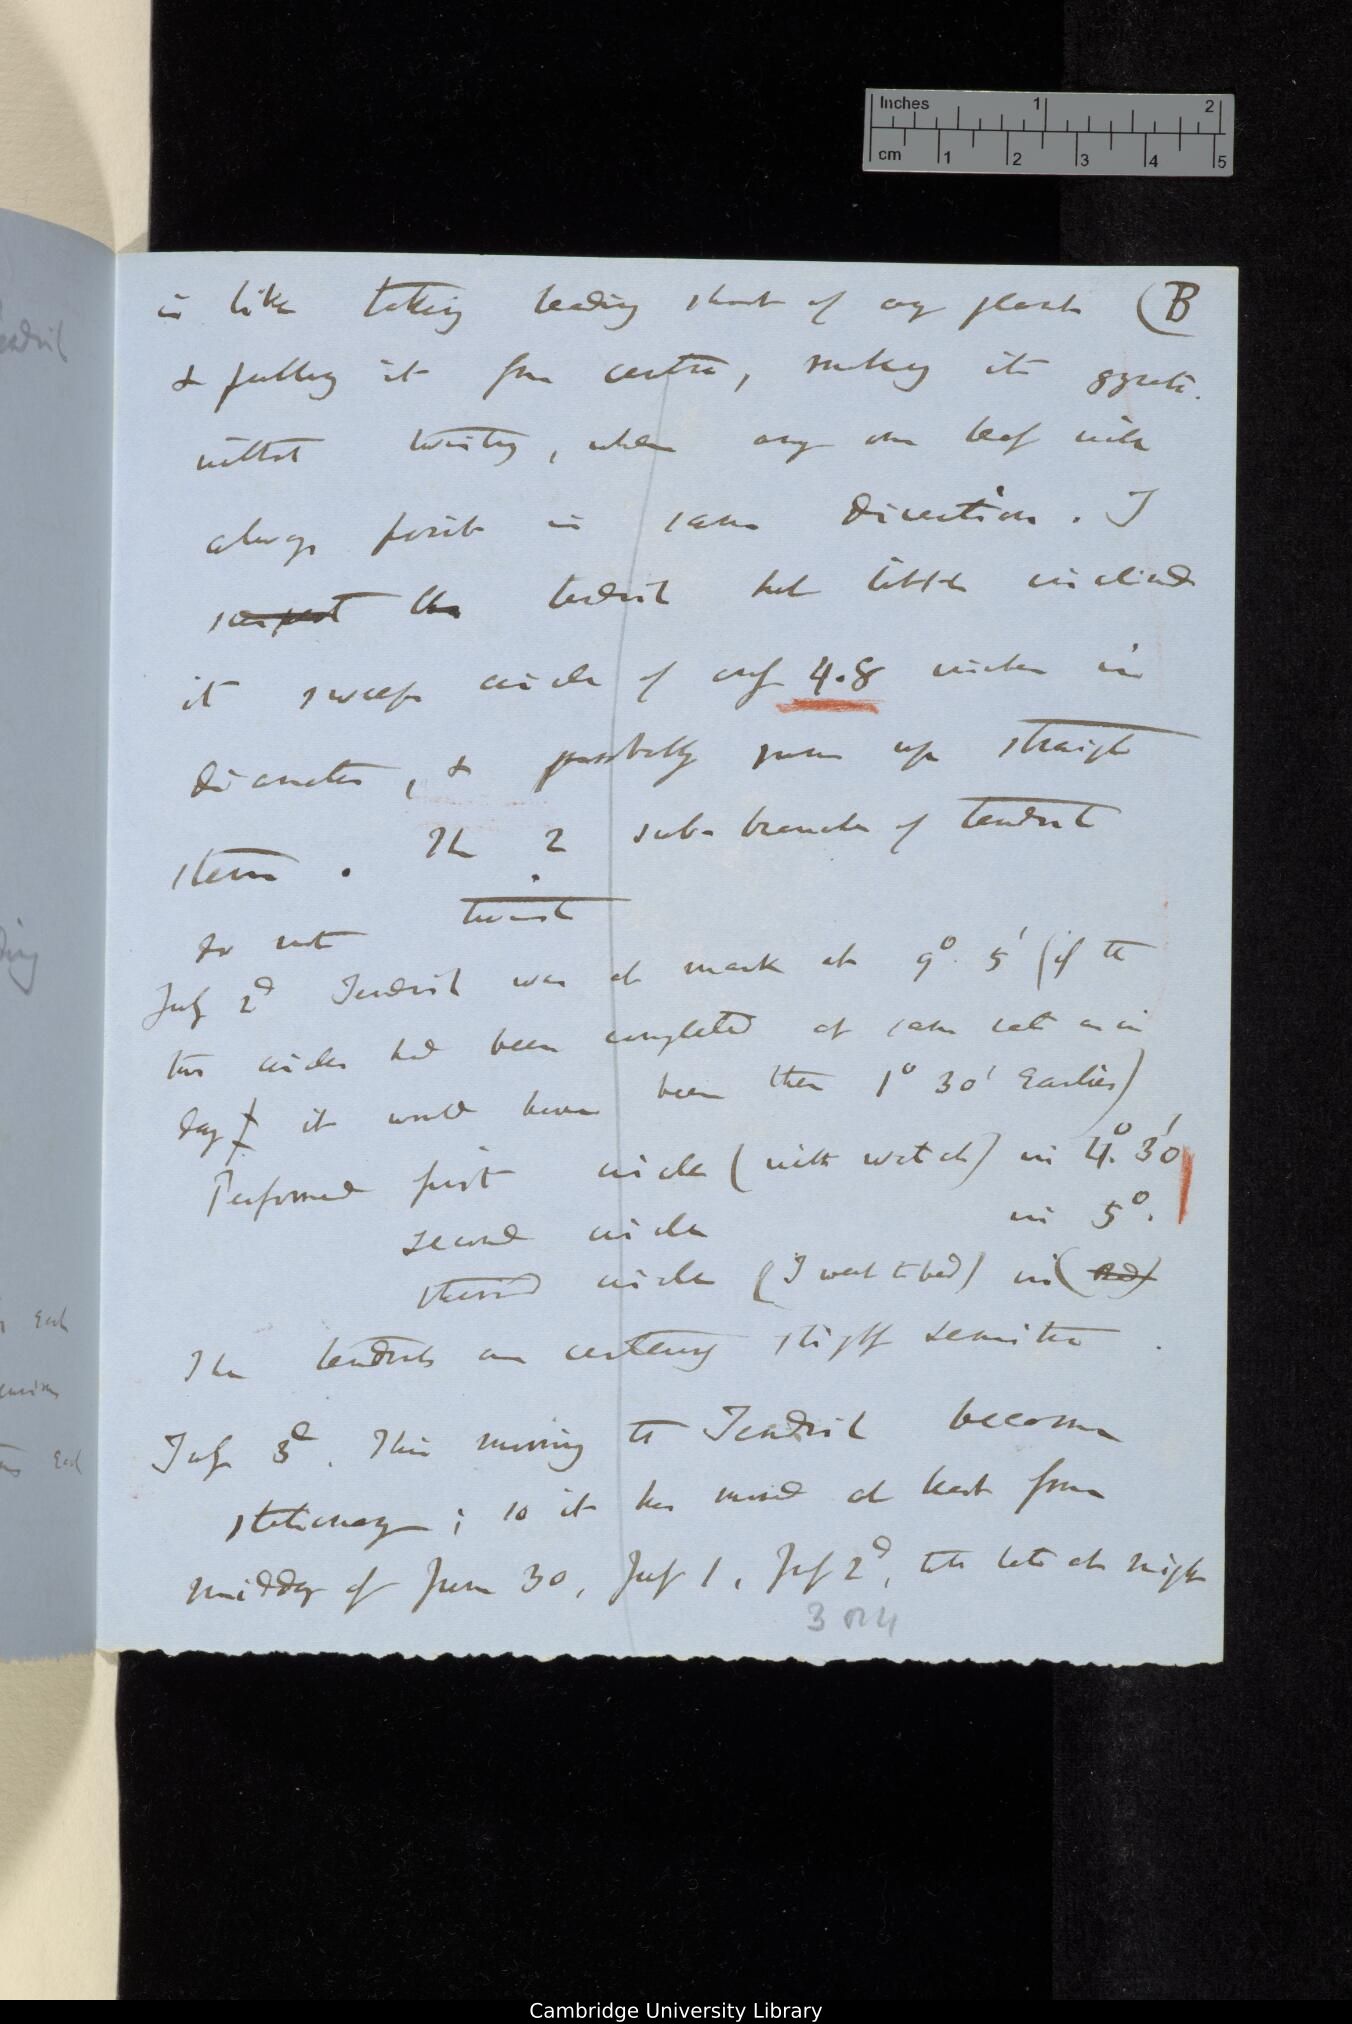 Inches 1 2
cm 1 2 3 4 5
is like taking leading shoot of any plant (B
& pulling it from centre, making it gyrate.
without twisting, when any one leaf will
always point in same direction. I
suspect the tendril but little inclined
it sweeps circle of only 4.8 inches in
diameter, & probably runs up straight
stem. The 2 sub-branches of tendril
do not twist
July 2d Tendril was at mark at 9° 5' (if the
two circles had been completed at same rate as in
day it would have been then 1° 30' earlier)
Performed first circle (with watch) in 4° 30'
second circle in 5°.
third circle (I went to bed) in
The tendrils are certainly slightly sensitive.
July 3d. This morning the Tendril become
stationary; so it has moved at least from
midday of June 30, July 1, July 2d, till late at night
3 or 4
endril
ing
each
Each
Cambridge University Library